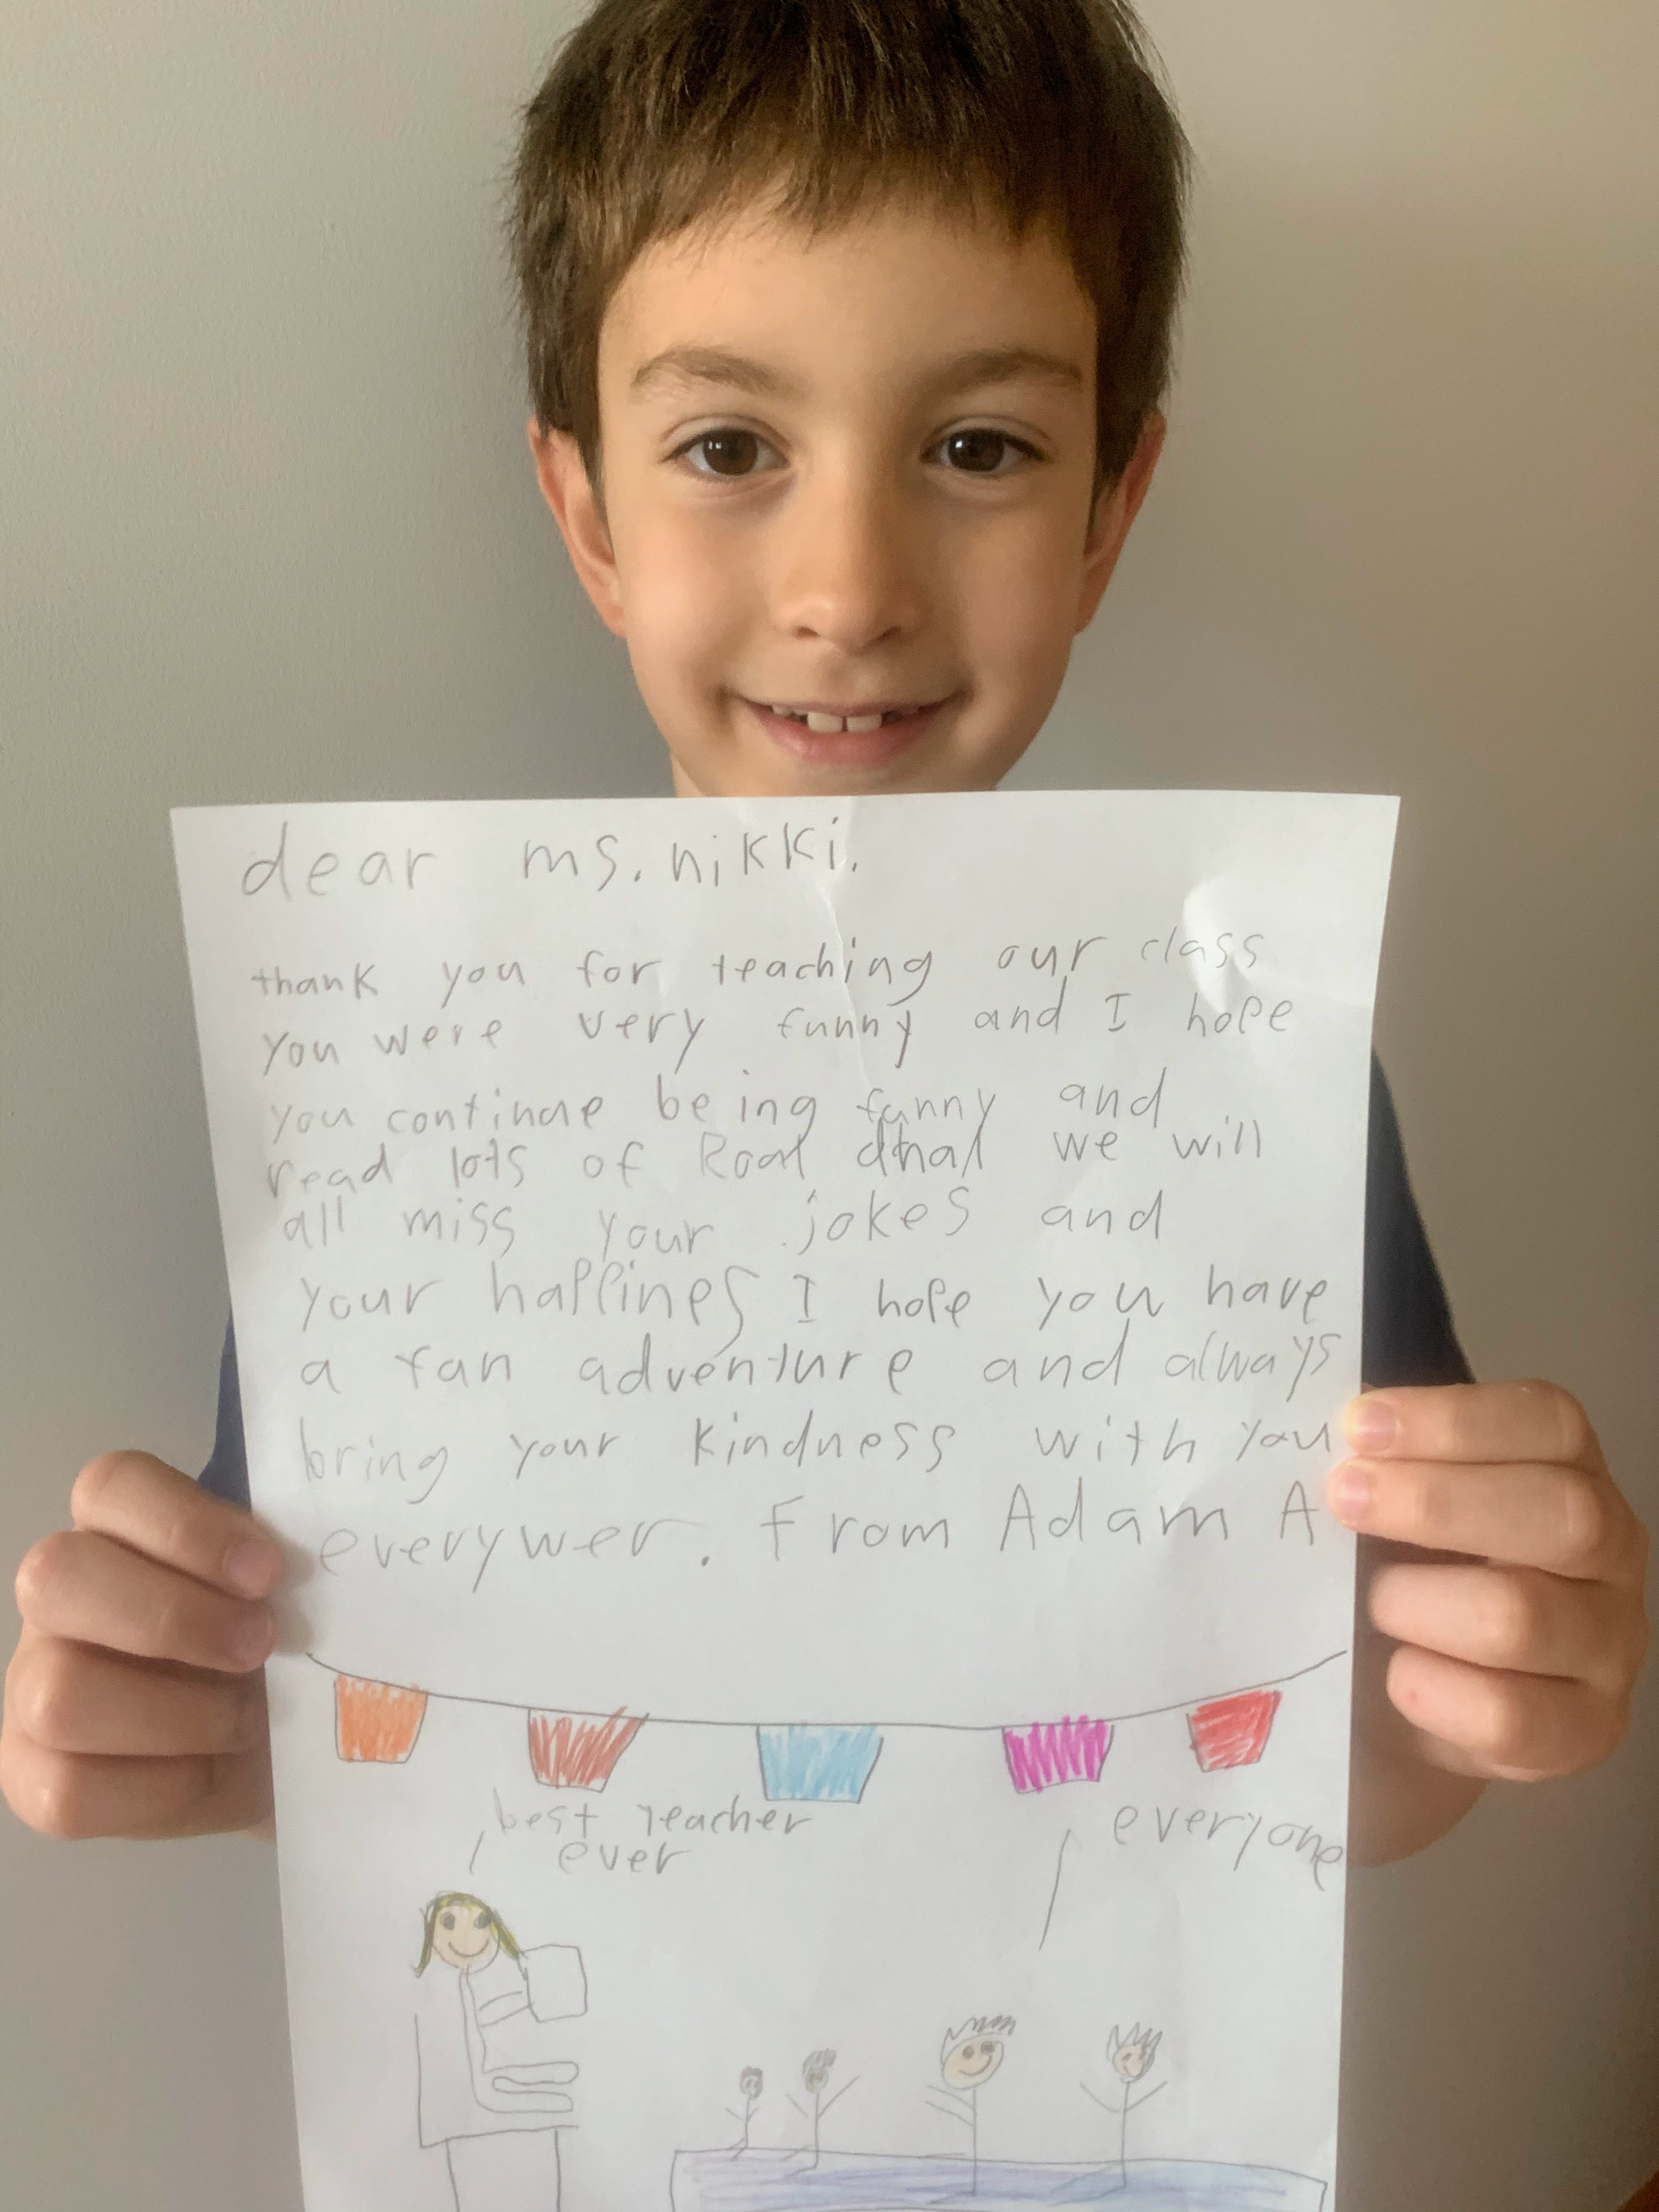 dear ms. nikki.
thank you for teaching our class
you were very funny and I hope
you continue being funny and
read lots of Roal dhal we will
all miss your jokes and
your happines I hope you have
a fun adventure and always
bring your kindness with you
everywer. From Adam A
best teacher
ever
everyone